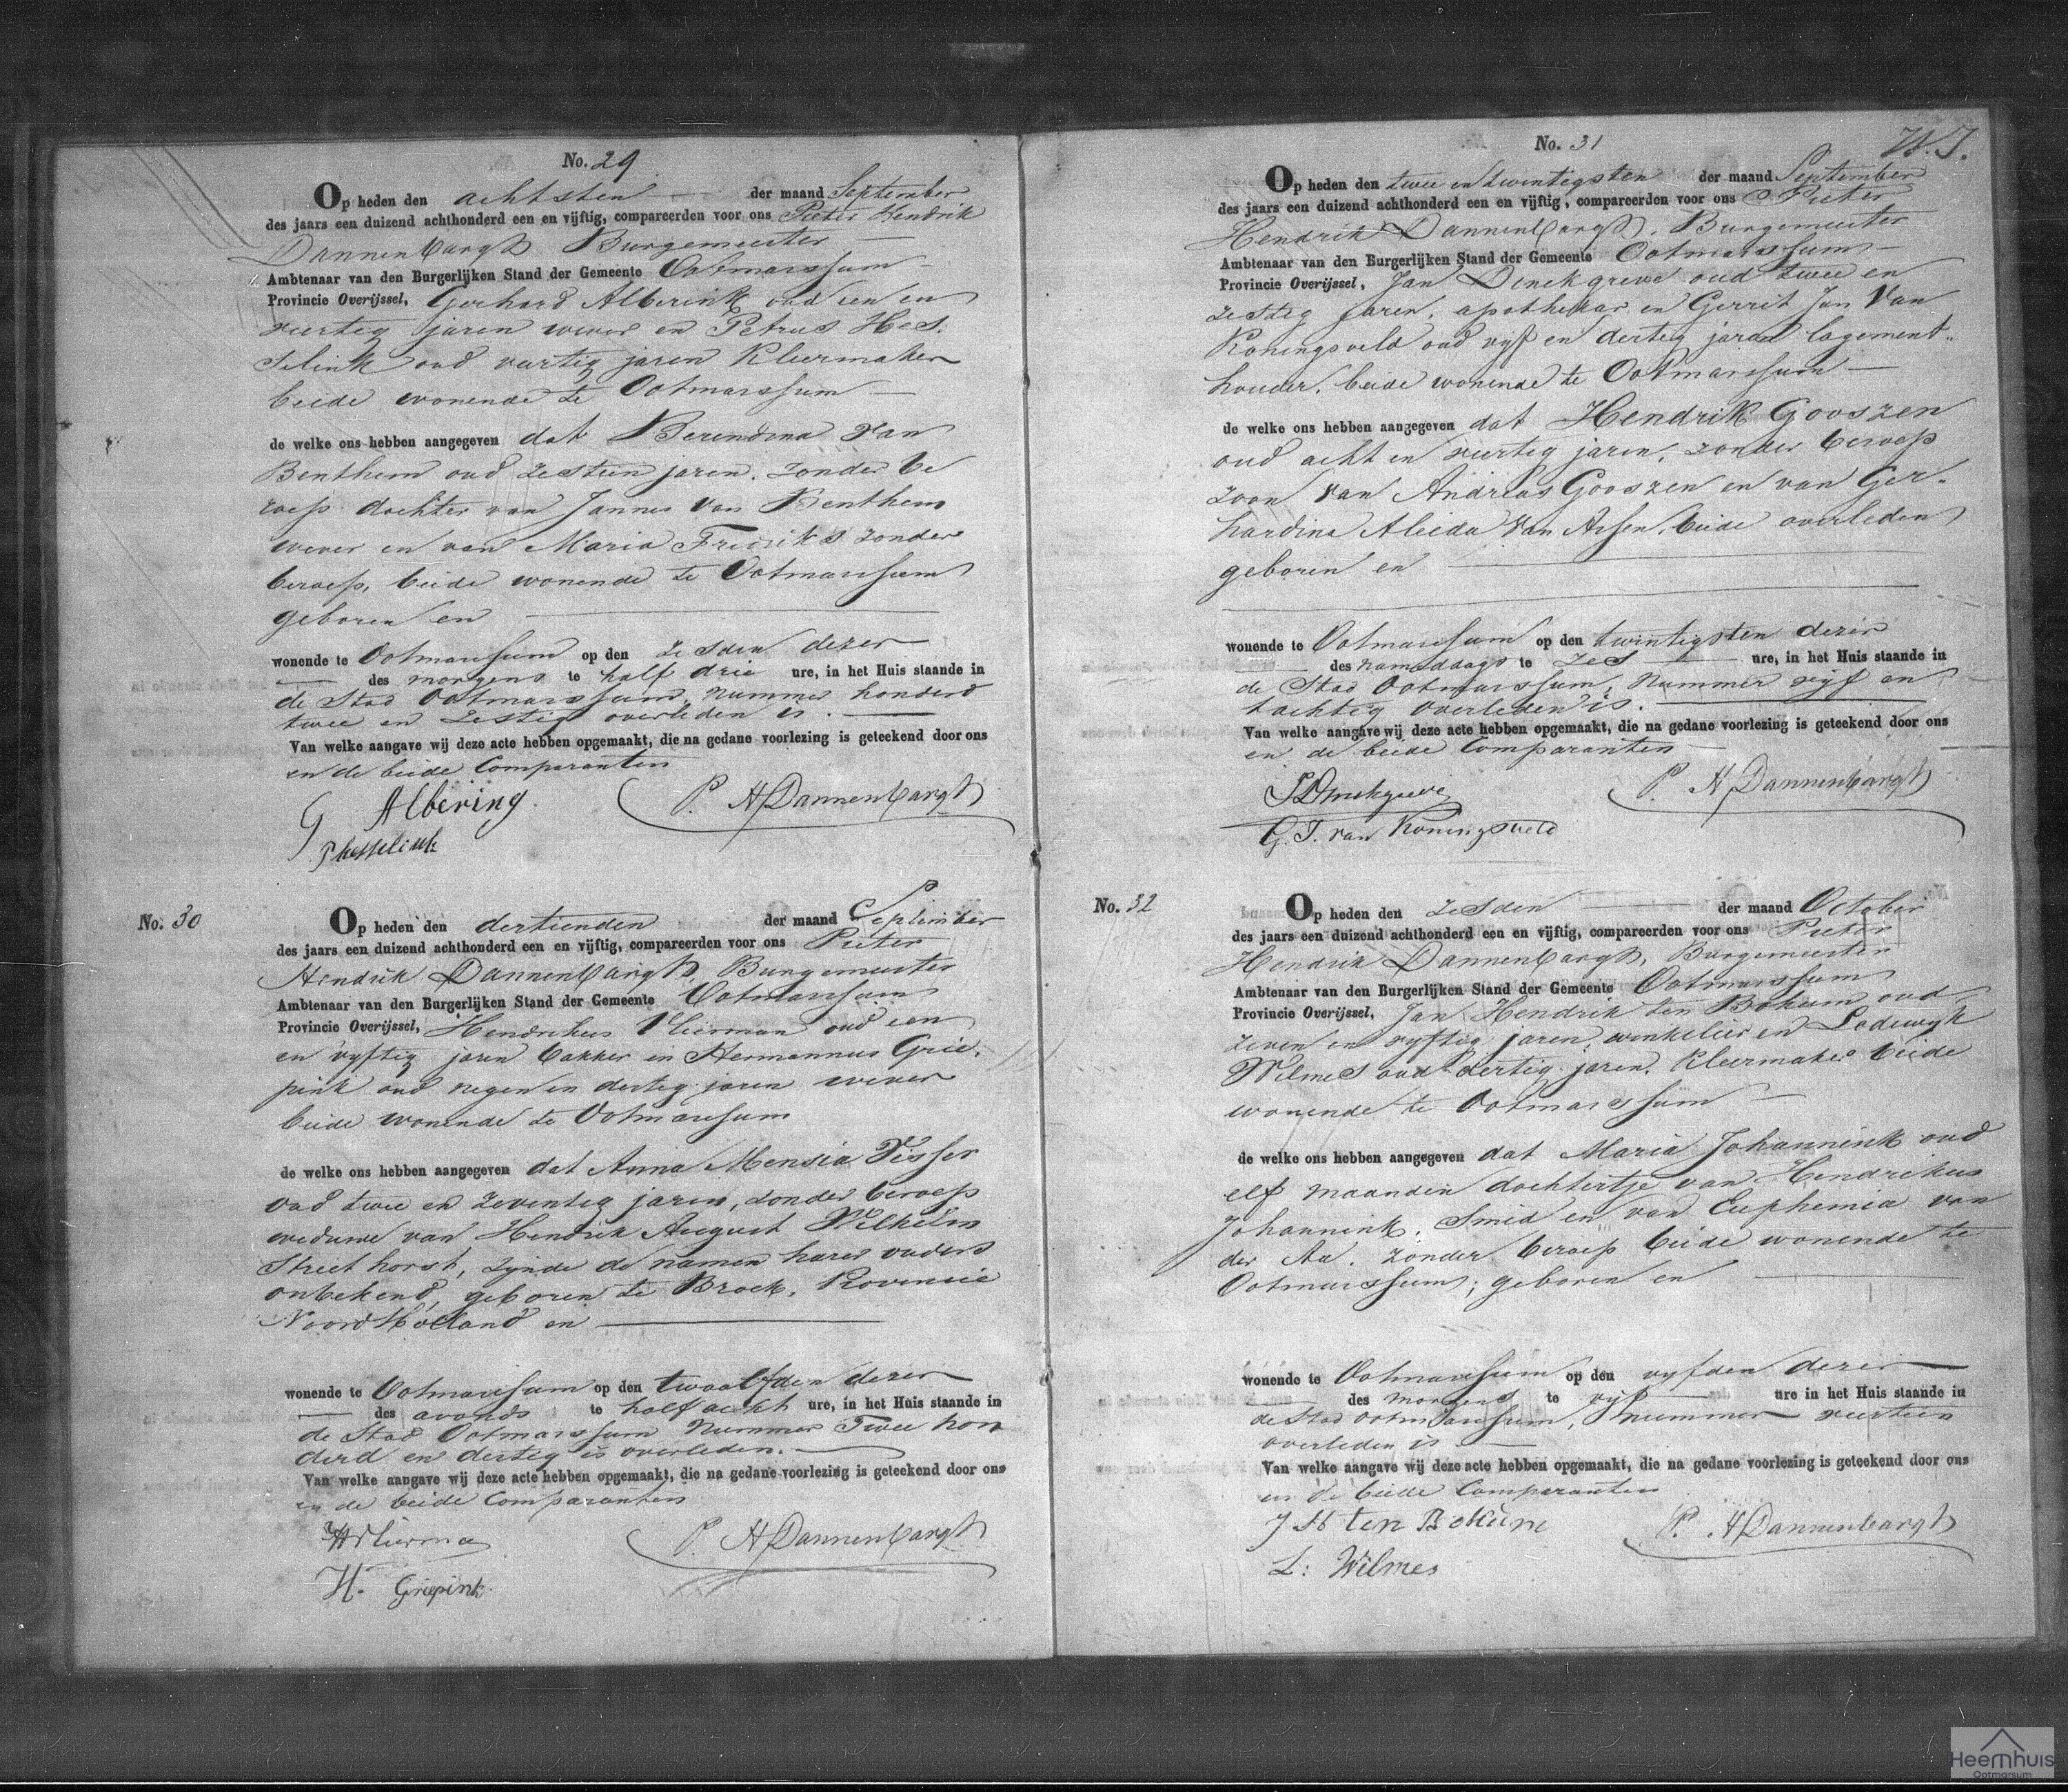 No. 29
Op heden den achtsten der maand September
des jaars een duizend achthonderd een en vijftig, compareerden voor ons Pieter Hendrik
Dannenbargh Burgemeester
Ambtenaar van den Burgerlijken Stand der Gemeente Ootmarssum
Provincie Overijssel, Gerhard Alberink oud een en
veertig jaren wever en Petrus Hes-
selink oud veertig jaren Kleermaker
beide wonende te Ootmarssum
de welke ons hebben aangegeven dat Berendina van
Benthem oud zestien jaren, zonder be
roep dochter van Jannes van Benthem
wever en van Maria Frediks zonder
beroep, beide wonende te Ootmarssum
geboren en
wonende te Ootmarssum op den zesden dezer
des morgens te half drie ure, in het Huis staande in
de Stad Ootmarssum, nummer honderd
twee en zestig overleden is.
Van welke aangave wij deze acte hebben opgemaakt, die na gedane voorlezing is geteekend door ons
en de beide Comparanten
G Albering P. H Dannenbargh
P hesselink
No. 30
Op heden den dertienden der maand September
des jaars een duizend achthonderd een en vijftig, compareerden voor ons Pieter
Hendrik Dannenbargh, Burgemeester
Ambtenaar van den Burgerlijken Stand der Gemeente Ootmarssum
Provincie Overijssel, Hendrikus Vlierman oud een
en vyftig jaren bakker en Hermannus Grie-
pink oud negen en dertig jaren wever
beide wonende te Ootmarssum
de welke ons hebben aangegeven dat Anna Mensia Visser
oud twee en zeventig jaren, zonder beroep
weduwe van Hendrik August Wilhelm
Striethorst, zynde de namen harer ouders
onbekend, geboren te Broek, Provincie
Noord Holland en
wonende te Ootmarssum op den twaalfden dezer
des avonds te half acht ure, in het Huis staande in
de Stad Ootmarssum Nummer Twee hon
derd en dertig is overleden.
Van welke aangave wij deze acte hebben opgemaakt, die na gedane voorlezing is geteekend door ons
en de beide Comparanten
P. H Dannenbargh
H. Griepink
No. 31
Op heden den twee en twintigsten der maand September
des jaars een duizend achthonderd een en vijftig, compareerden voor ons Pieter
Hendrik Dannenbargh, Burgemeester
Ambtenaar van den Burgerlijken Stand der Gemeente Ootmarssum
Provincie Overijssel, Jan Dinckgreve oud twee en
zestig jaren, apothekar en Gerrit Jan van
Koningsveld oud vyf en dertig jaren logement-
houder, beide wonende te Ootmarssum
de welke ons hebben aangegeven dat Hendrik Gooszen
oud acht en veertig jaren, zonder beroep
zoon van Andries Gooszen en van Ger-
hardina Aleida van Assen, beide overleden
geboren en
wonende te Ootmarssum op den twintigsten dezer
des namiddags te zes ure, in het Huis staande in
de Stad Ootmarssum, Nummer vyf en
tachtig overleden is.
Van welke aangave wij deze acte hebben opgemaakt, die na gedane voorlezing is geteekend door ons
en de beide Comparanten
P. H Dannenbargh
G. J. van Koningsveld
No. 32
Op heden den zesden der maand October
des jaars een duizend achthonderd een en vijftig, compareerden voor ons Pieter
Hendrik Dannenbargh, Burgemeester
Ambtenaar van den Burgerlijken Stand der Gemeente Ootmarssum
Provincie Overijssel, Jan Hendrik ten Bokum oud
zeven en vyftig jaren, winkelier en Lodewyk
Wilmes oud dertig jaren, Kleermaker beide
wonende te Ootmarssum
de welke ons hebben aangegeven dat Maria Johannink oud
elf maanden dochtertje van Hendrikus
Johannink, Smid en van Euphemia van
der Aa, zonder beroep beide wonende te
Ootmarssum; geboren en
wonende te Ootmarssum op den vyfden dezer
des morgens te vyf ure in het Huis staande in
de Stad Ootmarssum, nummer veertien
overleden is
Van welke aangave wij deze acte hebben opgemaakt, die na gedane voorlezing is geteekend door ons
en de beide Comparanten
J H ten Bokum P. H Dannenbargh
L: Wilmes
Heemhuis
Ootmarsum